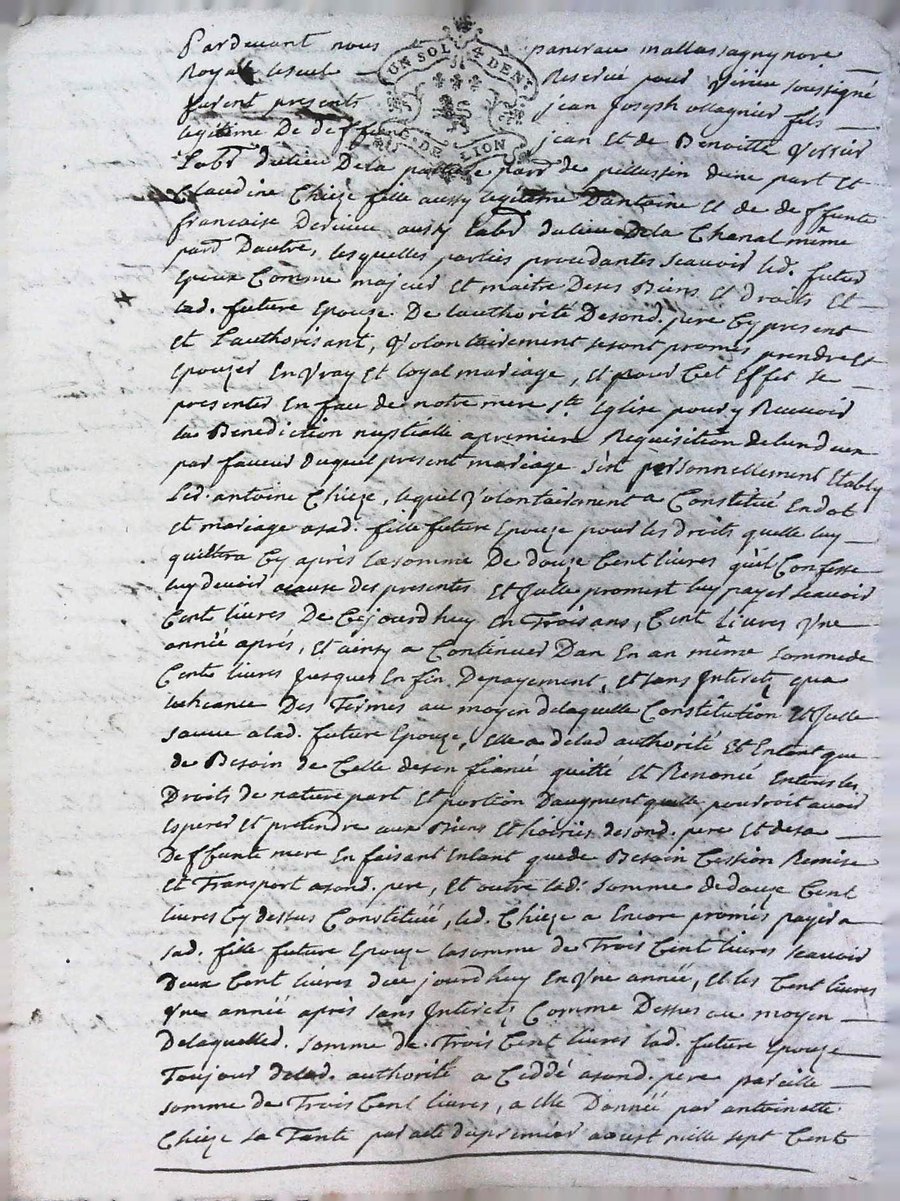 Pardevant nous pancrau mallassagny nore
UN SOL 4 DEN.
Royal Reservé pour Virieu soussigné
furent presents jean joseph ollagnier fils
legitime De deffunt jean Et de Benoitte Vessier
DE LION
Labr Dulieu Dela parr de pellussin dune part Et
Claudine Chieze fille aussy legitime Dantoine Et de deffunte
francoise Derieu aussy Labr dulieu Dela Chanal même
parr Dautre, lesquelles parties procedantes scauoir led. futur
Epoux Comme majeur Et maitre Deses Biens Et Droits Et
lad. future Epouze De lauthorité Desond. pere Cy present
Et Lauthorisant, Volontairement sesont promis prendre Et
Epouzer En Vray Et loyal mariage, Et pour Cet Effet se
presenter En face de notre mere ste Eglise pour y Receuoir
la Benediction nuptialle a premiere Requisition delun deux
par faueur duquel present mariage s'est personnellement Etably
Led. antoine Chieze, lequel Volontairement a Constitué En dot
Et mariage asad. fille future Epouze pour les droits quelle luy
quittera Cy après la somme De douze Cent liures quil Confesse
luy deuoir acause des presentes Et Jcelle promest luy payer scauoir
Cent liures De Cejourdhuy En Trois ans, Cent liures Vne
année après, Et ainsy a Continuer Dan En an même somme de
Cent liures Jusques En fin Depayement, Et sans Jnterets qua
Echeance Des Termes au moyen delaquelle Constitution Et Jcelle
sauue alad. future Epouze, Elle a delad authorité Et Entant que
de Besoin de Celle deson fiancé quitté Et Renoncé Entous les
Droits de nature part Et portion Daugment quelle pourroit auoir
Esperer Et pretendre aux Biens Et hoiries desond. pere Et desa
Deffunte mere En faisant Entant quede Besoin Cession Remise
Et Transport asond. pere, Et outre lad. somme dedouze Cent
liures Cy dessus Constituée, led. Chieze a Encore promis payer a
sad. fille future Epouze la somme de Trois Cent liures scauoir
Deux Cent liures dece jourdhuy En Vne année, Et les Cent liures
Vne année après sans Jnterets Comme Dessus au moyen
Delaquelled. somme de Trois Cent liures lad. future Epouze
Toujour delad. authorité a Ceddé asond. pere pareille
somme de Trois Cent liures, a Elle Donnée par antoinette
Chieze sa Tante par acte dupremier aoust mille sept Cent